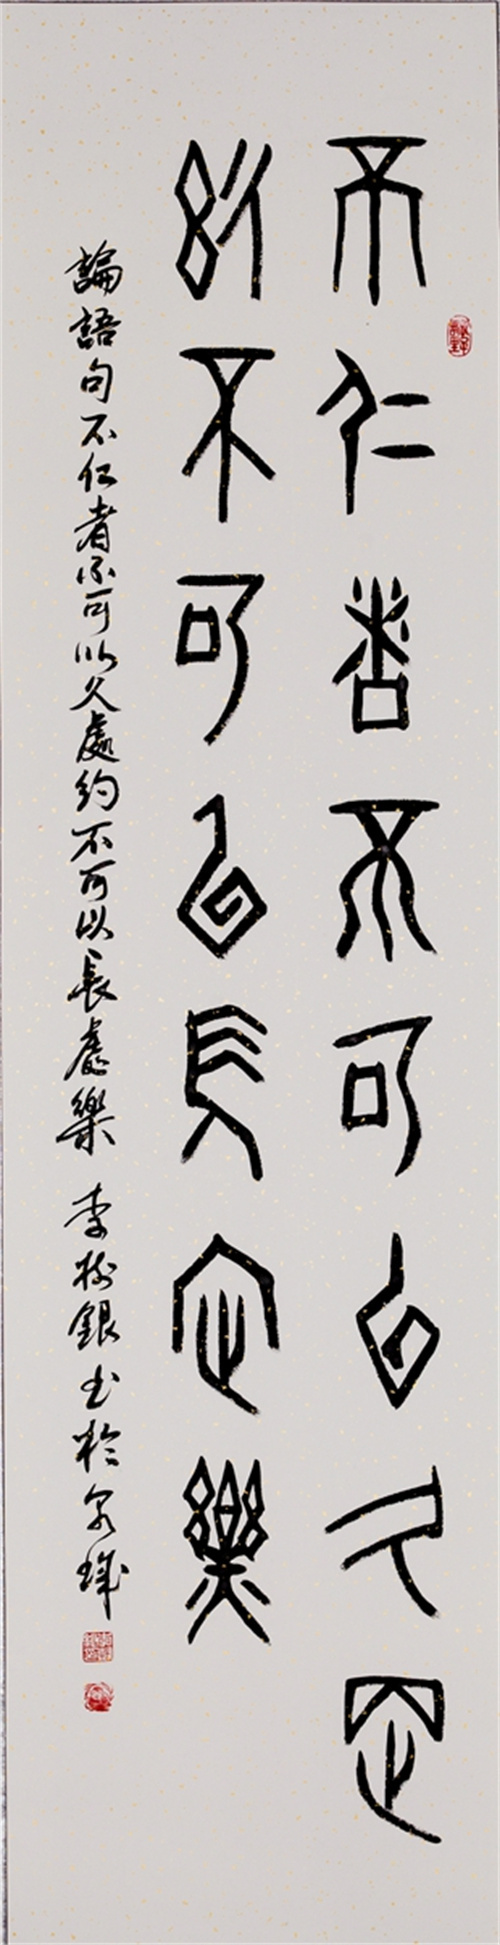 不仁者不可以久处
约不可以长处樂
論語句不仁者不可以久處約不可以長處樂 李樹銀书於泉城